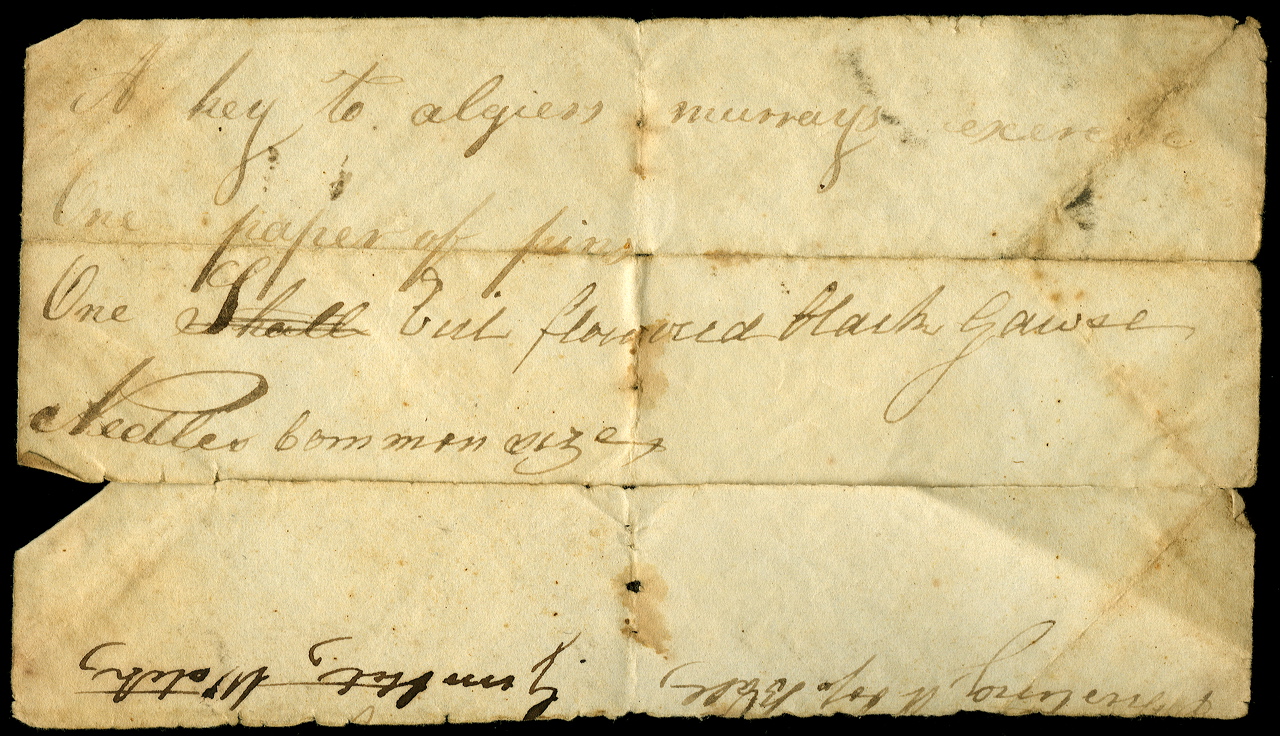 A key to algiers murrays exercise
One paper of pins
One Shall Veil flowered black Gause
Needles Common sizes